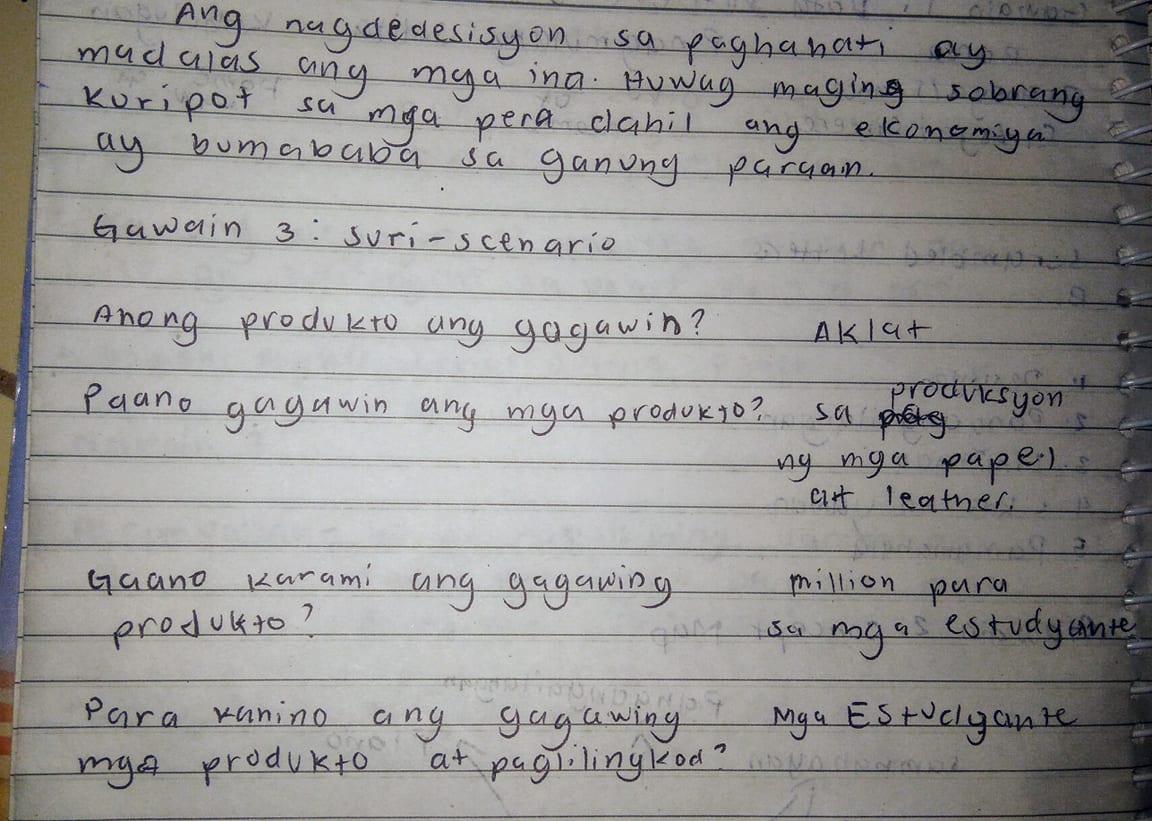 Ang nagdedesisyon sa paghahati ay
madalas ang mga ina. Huwag maging sobrang
kuripot sa mga pera dahil ang ekonomiya
ay bumababa sa ganung paraan.
Gawain 3: suri-scenario
Anong produkto ang gagawin? Aklat
Paano gagawin ang mga produkto? sa produksyon
ng mga papel
at leather.
Gaano karami ang gagawing million para
produkto? sa mga estudyante
Para kanino ang gagawing Mga Estudyante
mga produkto at paglilingkod?